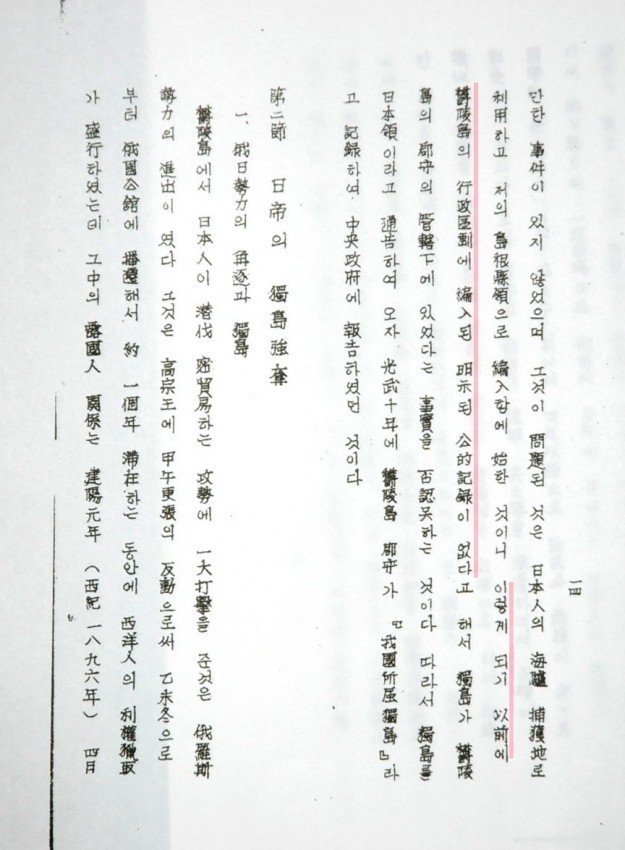 一四
만한 事件이 있지 않었으며 그것이 問題된 것은 日本人의 海驢 捕獲地로
利用하고 저의 島根縣領으로 編入함에 始한 것이니 이렇게 되기 以前에
鬱陵島의 行政區劃에 編入된 明示된 公的記錄이 없다고 해서 獨島가 鬱陵
島의 郡守의 管轄下에 있었다는 事實을 否認못하는 것이다 따라서 獨島를
日本領이라고 通告하여 오자 光武十年에 鬱陵島 郡守가 『我國所屬獨島』라
고 記錄하여 中央政府에 報告하였던 것이다
第二節 日帝의 獨島強奪
一、俄日勢力의 角逐과 獨島
鬱陵島에서 日本人이 潜伐 密貿易하는 攻勢에 一大打擊을 준것은 俄羅斯
勢力의 進出이 였다 그것은 高宗王에 甲午更張의 反動으로써 乙未冬으로
부터 俄國公館에 播遷해서 約 一個年 滯在하는 동안에 西洋人의 利權獵取
가 盛行하였는데 그中의 露國人 關係는 建陽元年(西紀一八九六年) 四日